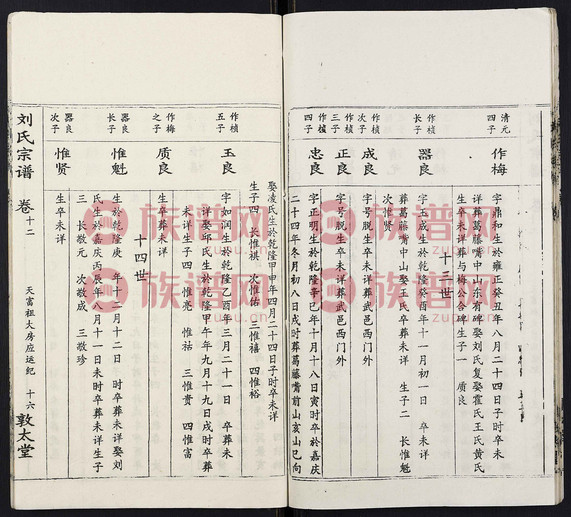 清元
四子
作梅
字鼎和生於雍正癸丑年八月二十四日子時卒未
詳葬葛藤嘴中山东有碑娶刘氏复娶霍氏王氏黄氏
生卒未详葬与梅公合碑生子一 质良
十三世
作桢
长子
器良
字玉成生於乾隆癸酉年十一月初一日 卒未详
葬葛藤嘴中山娶王氏卒葬未详 生子二 长惟魁
次惟贤
作桢
次子
成良
字号脱生卒未详葬武邑西门外
作桢
三子
正良
字号脱生卒未详葬武邑西门外
作桢
四子
忠良
字正明生於乾隆辛巳年十月十八日寅时卒於嘉庆
二十四年冬月初八日戌时葬葛藤嘴前山亥山巳向
娶凌氏生於乾隆甲申年四月二十四日子时卒未详
生子四 长惟祺 次惟佑 三惟禧 四惟裕
作桢
五子
玉良
字如润生於乾隆乙酉年三月二十一日 卒葬未
详娶邱氏生於乾隆甲午年九月十九日戌时卒葬
未详生子四 惟亮 惟祜 三惟贵 四惟富
作梅
之子
质良
生卒葬未详
十四世
器良
长子
惟魁
生於乾隆庚 年十二月十二日 时卒葬未详娶刘
氏生於嘉庆丙辰年八月十一日未时卒葬未详生子
三 长敬元 次敬成 三敬珍
器良
次子
惟贤
生卒未详
刘氏宗谱 卷十二 天富祖大房应运纪 十六 敦太堂
族谱网
族谱网
族谱网
族谱网